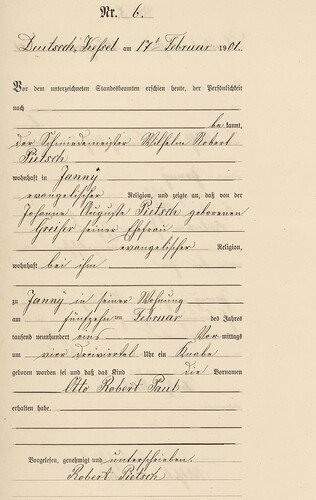 Nr. 6.
Deutsch Kessel am 17t Februar 1901.
Vor dem unterzeichneten Standesbeamten erschien heute, der Persönlichkeit
nach
bekannt,
der Schmiedemeister Wilhelm Robert
Pietsch
wohnhaft in Janny
evangelischer Religion, und zeigte an, daß von der
Johanne Auguste Pietsch geborenen
Greiser seiner Ehefrau
evangelischer Religion,
wohnhaft bei ihm
zu Janny in seiner Wohnung
am fünfzehn ten Februar des Jahres
tausend neunhundert eins Vor mittags
um vier dreiviertel Uhr ein Knabe
geboren worden sei und daß das Kind die Vornamen
Otto Robert Paul
erhalten habe.
Vorgelesen, genehmigt und unterschrieben.
Robert Pietsch